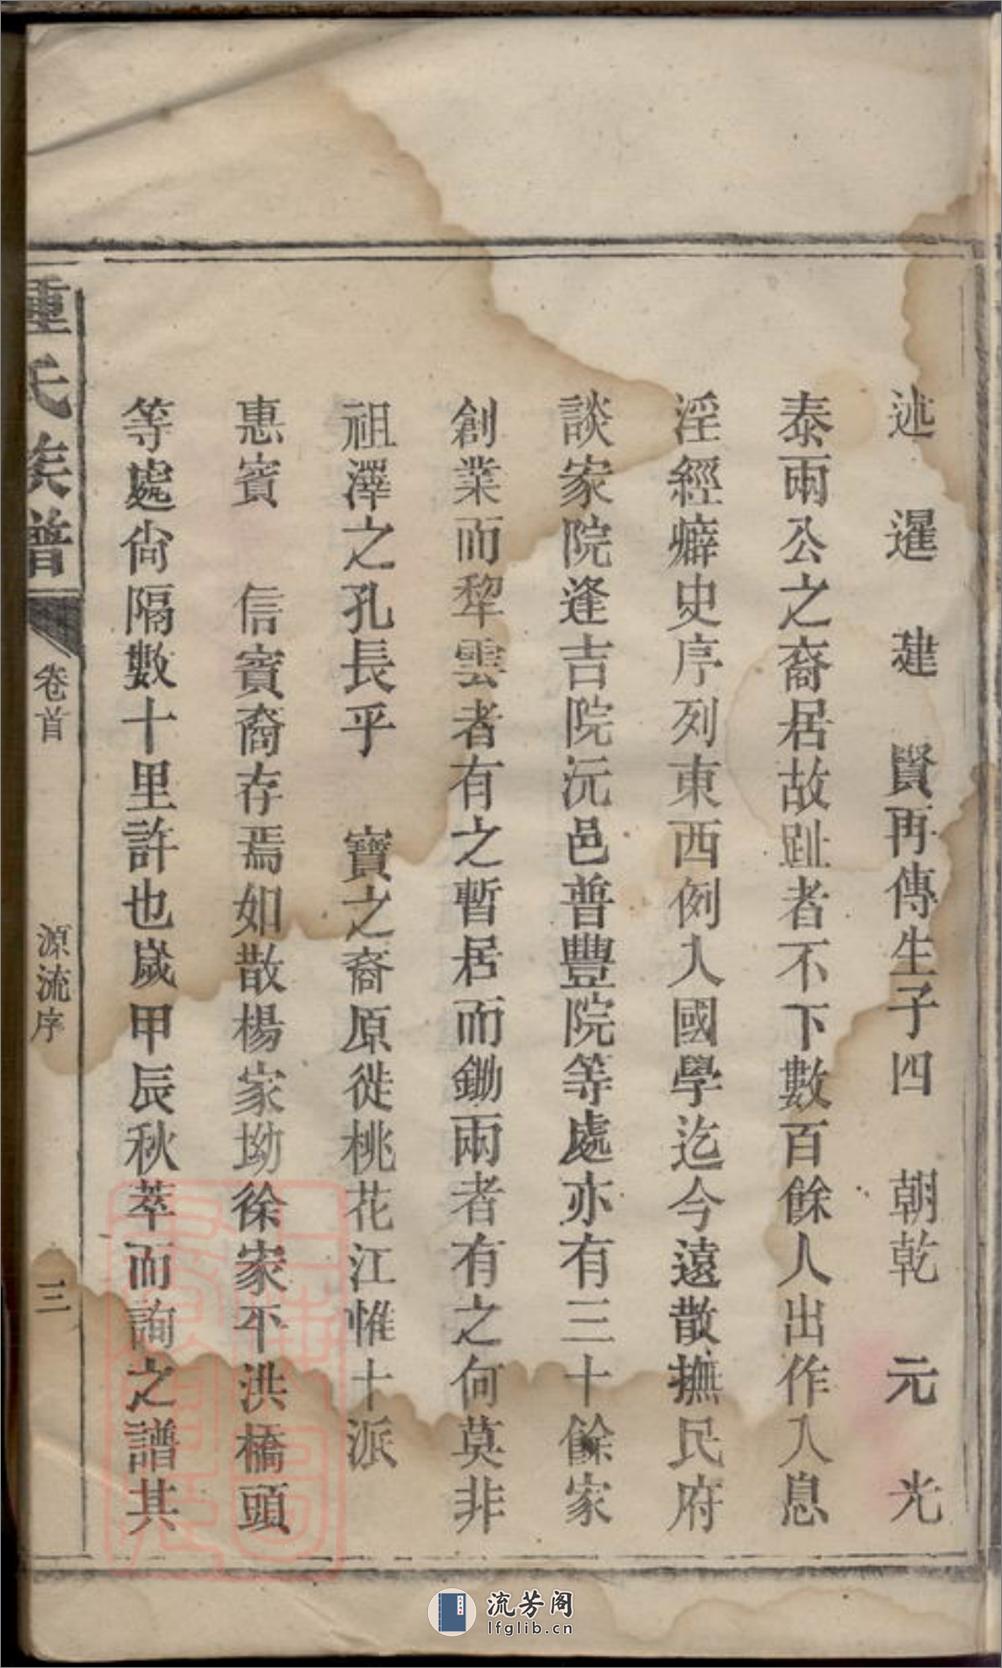 述 暹 建 賢再傳生子四 朝乾 元 光
泰兩公之裔居故趾者不下數百餘人出作入息
淫經癖史序列東西例入國學迄今遠散撫民府
談家院逢吉院沅邑普豐院等處亦有三十餘家
創業而犂雲者有之暫居而鋤雨者有之何莫非
祖澤之孔長乎 寶之裔原徙桃花江惟十派
惠賓 信賓裔存焉如散楊家坳徐家不洪橋頭
等處尙隔數十里許也歲甲辰秋萃而詢之譜其
氏族譜 卷首 源流序 三
流芳阁
lfglib.cn